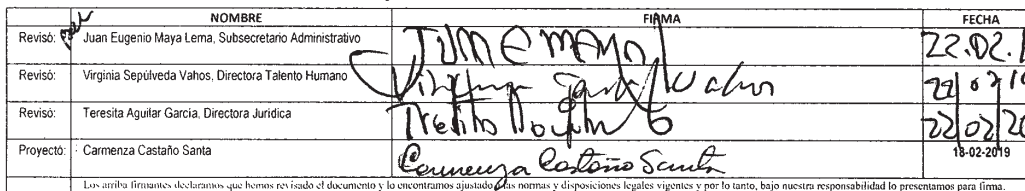 NOMBRE FIRMA FECHA
Revisó: Juan Eugenio Maya Lema, Subsecretario Administrativo 22.02.1
Revisó: Virginia Sepúlveda Vahos, Directora Talento Humano Virginia Vahos 22/02/19
Revisó: Teresita Aguilar García, Directora Jurídica 22/02/20
Proyectó: Carmenza Castaño Santa Carmenza Castaño Santa 18-02-2019
Los arriba firmantes declaramos que hemos revisado el documento y lo encontramos ajustado a las normas y disposiciones legales vigentes y por lo tanto, bajo nuestra responsabilidad lo presentamos para firma.